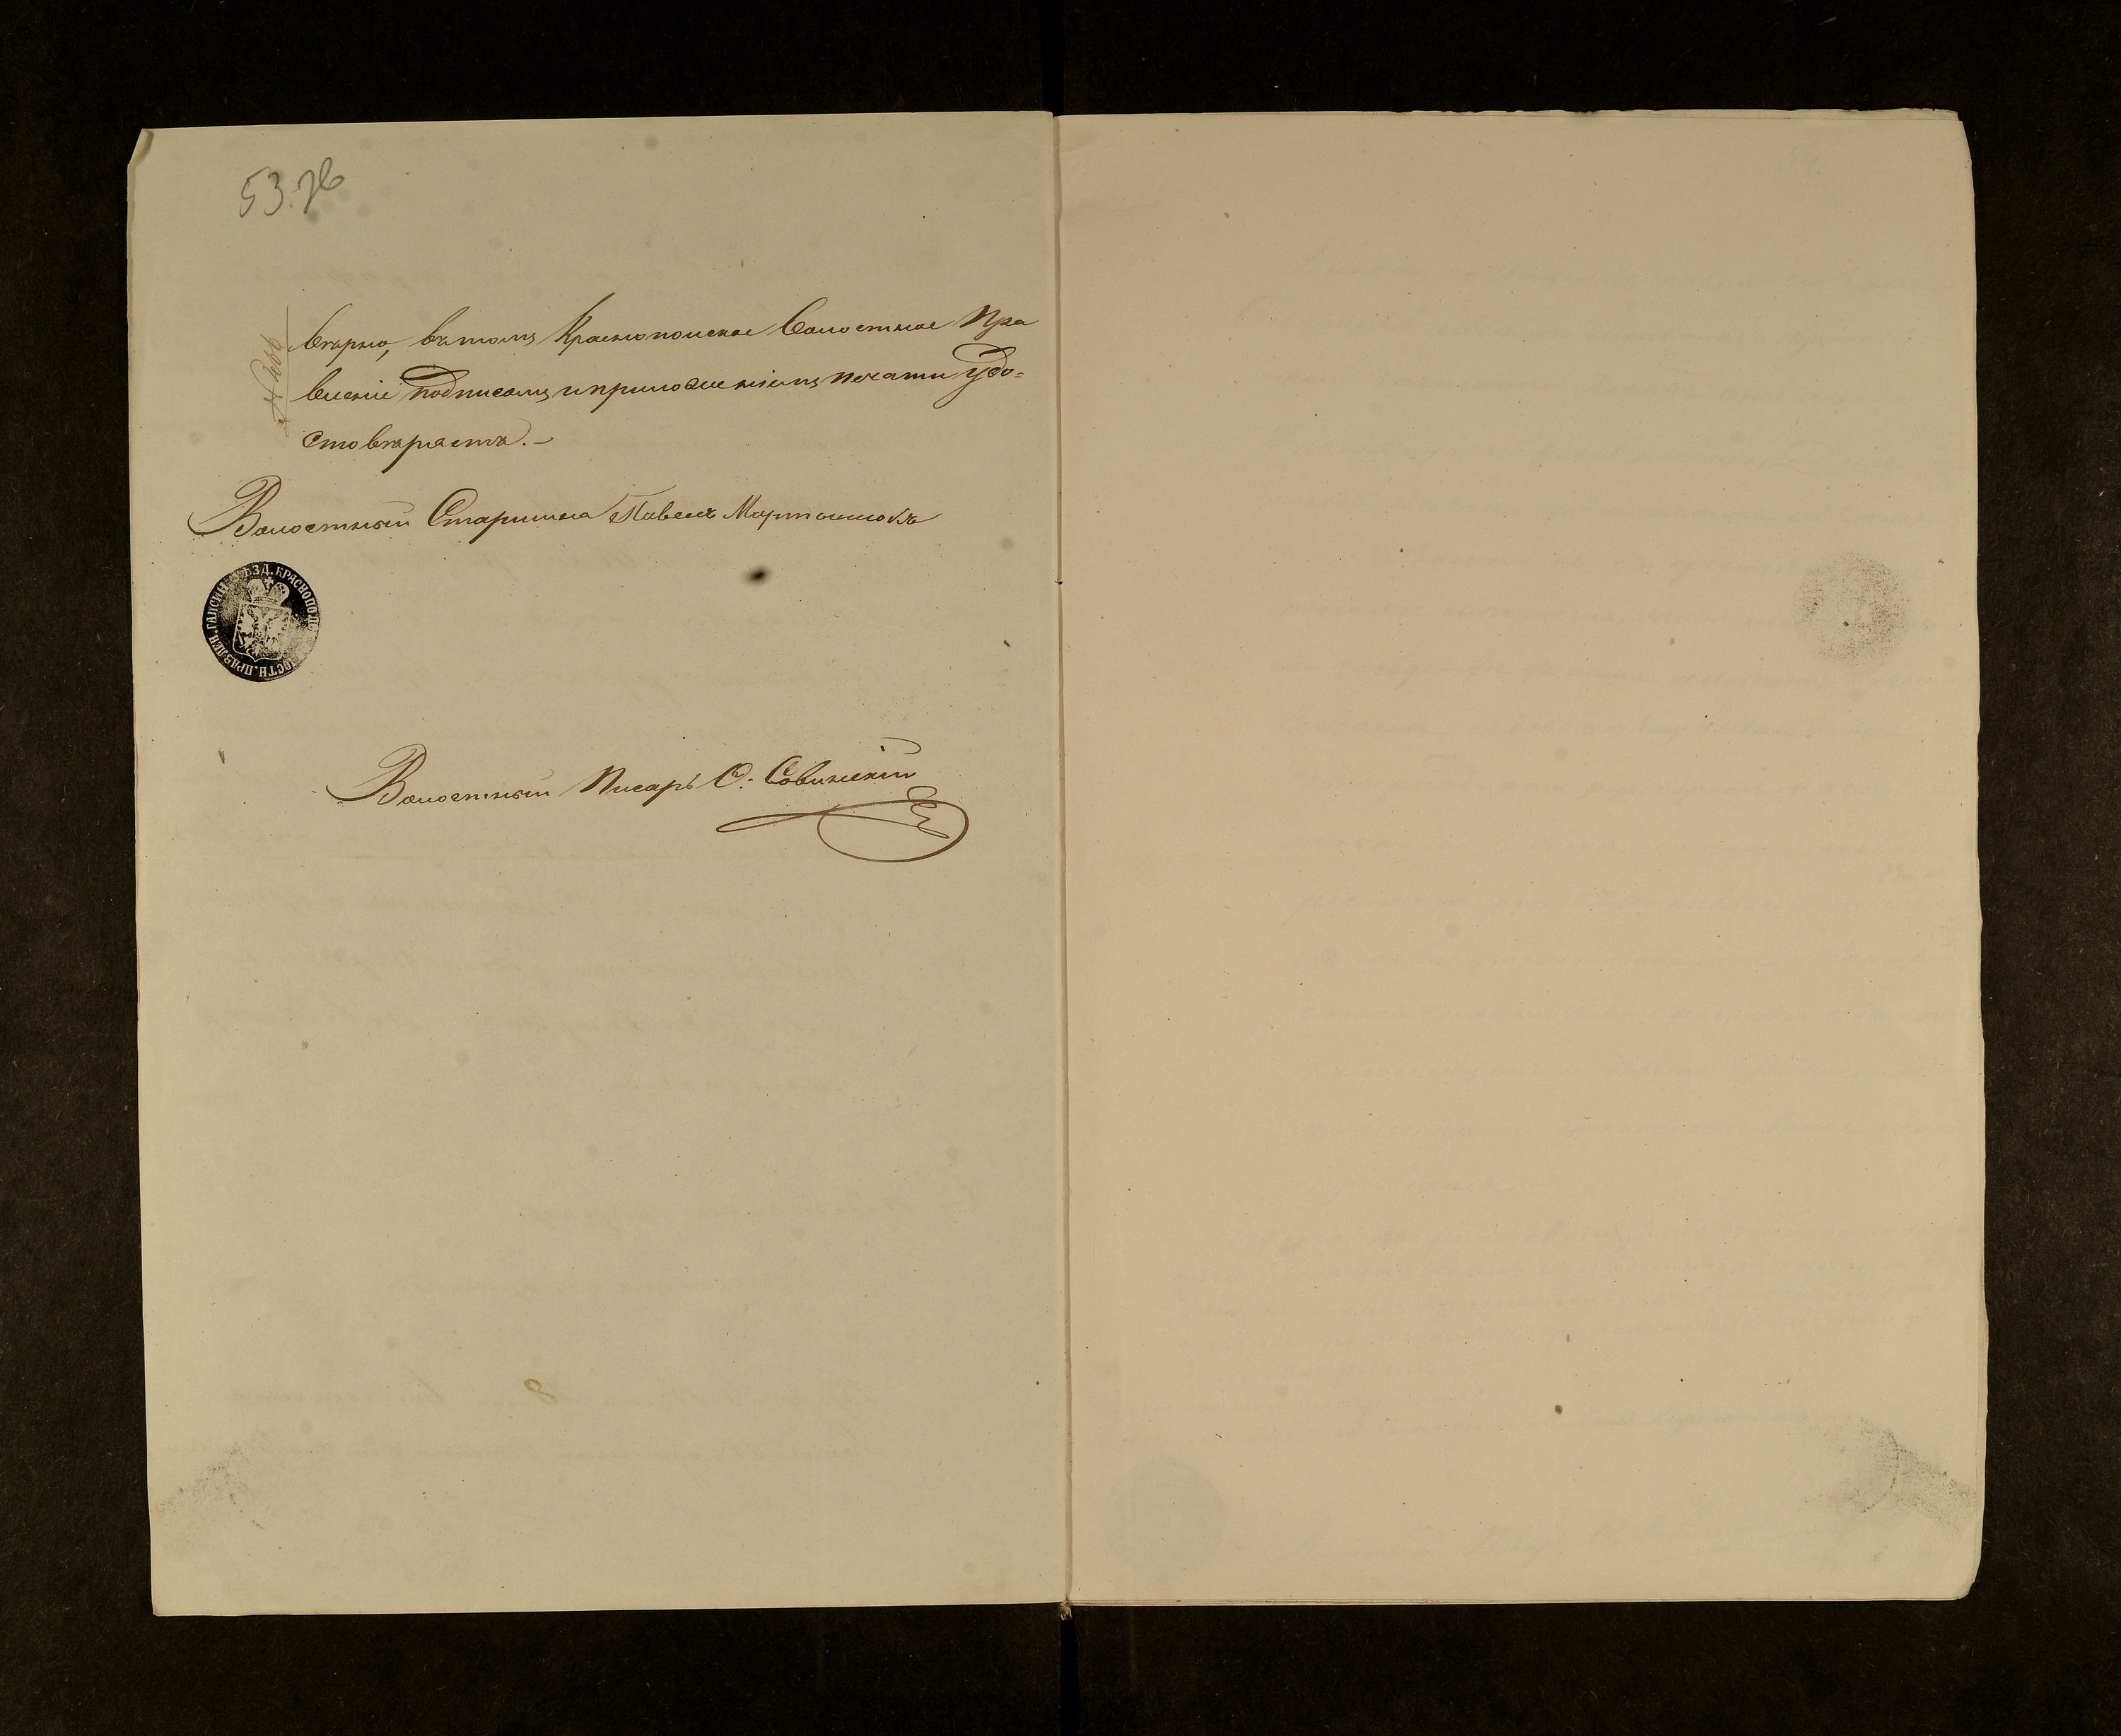 53 зв
вѣрно, въ томъ Краснопольское Волостное Пра
вленіе подписомъ и приложеніемъ печати удо=
стовѣряетъ.-
Волостный Старшина Павелъ Мартынюкъ
ГАИСИН. УѢЗД. КРАСНОПОЛЬ ВОЛОСТН. ПРАВЛЕН.
Волостный Писарь О. Савинскій